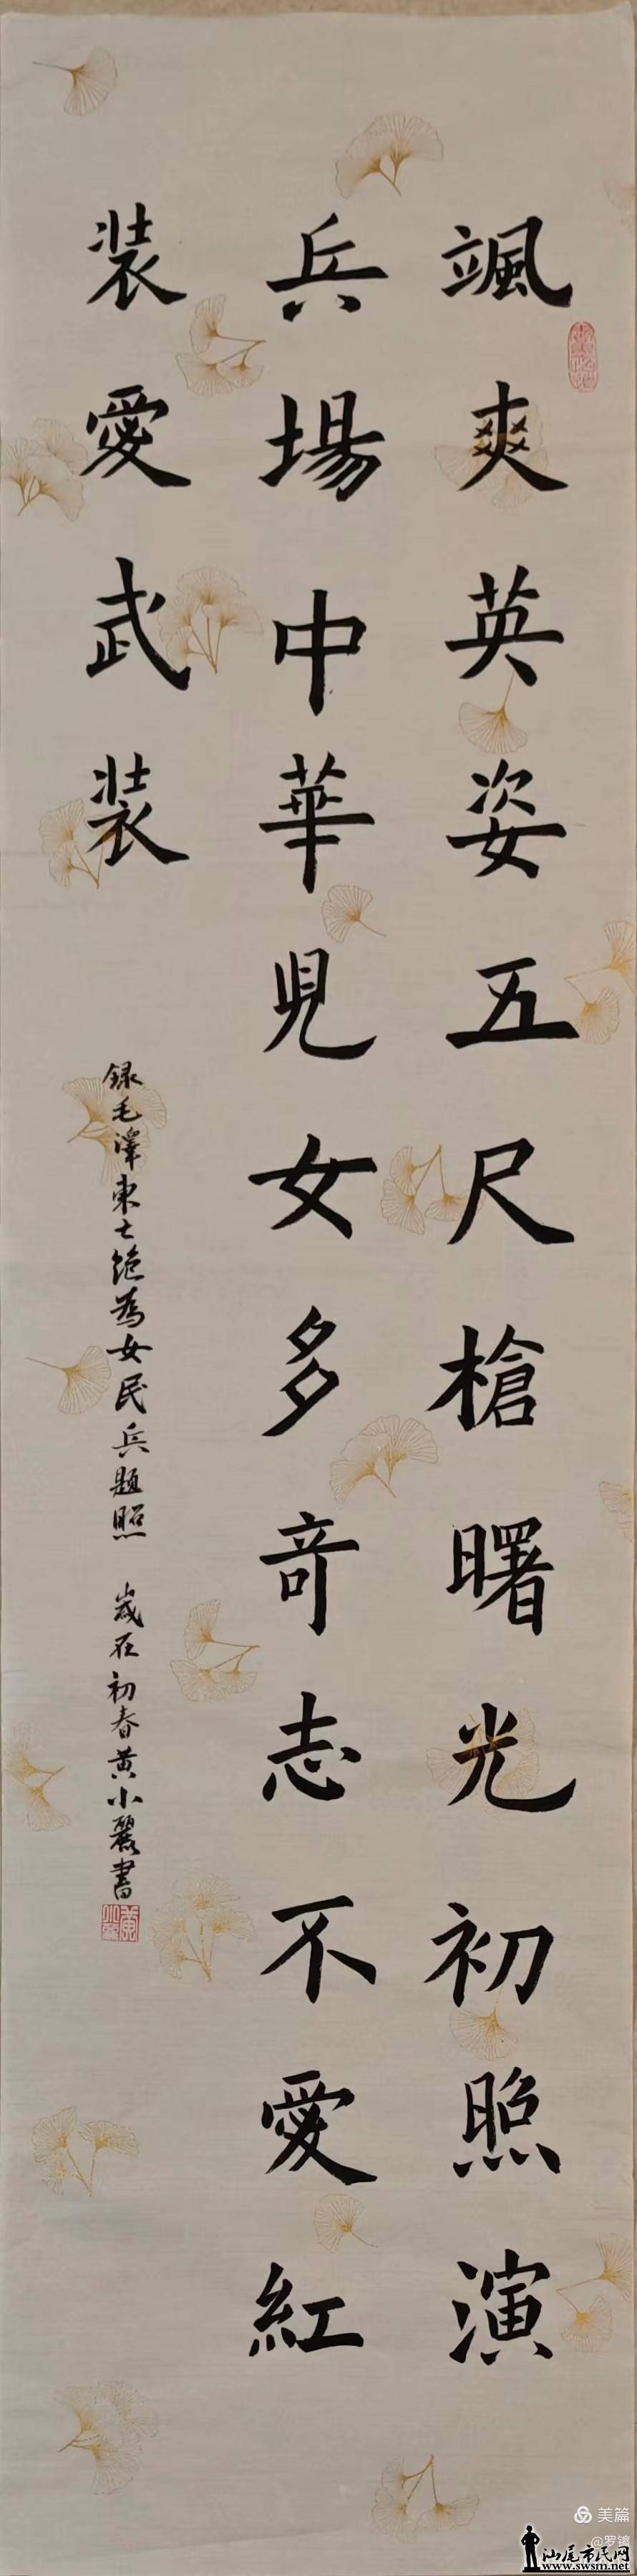 颯爽英姿五尺槍曙光初照演
兵場中華兒女多奇志不愛紅
装愛武装
録毛澤東七絶為女民兵題照 歲在初春黄小麗書
美篇
@罗镜
汕尾市民网
www.swsm.net